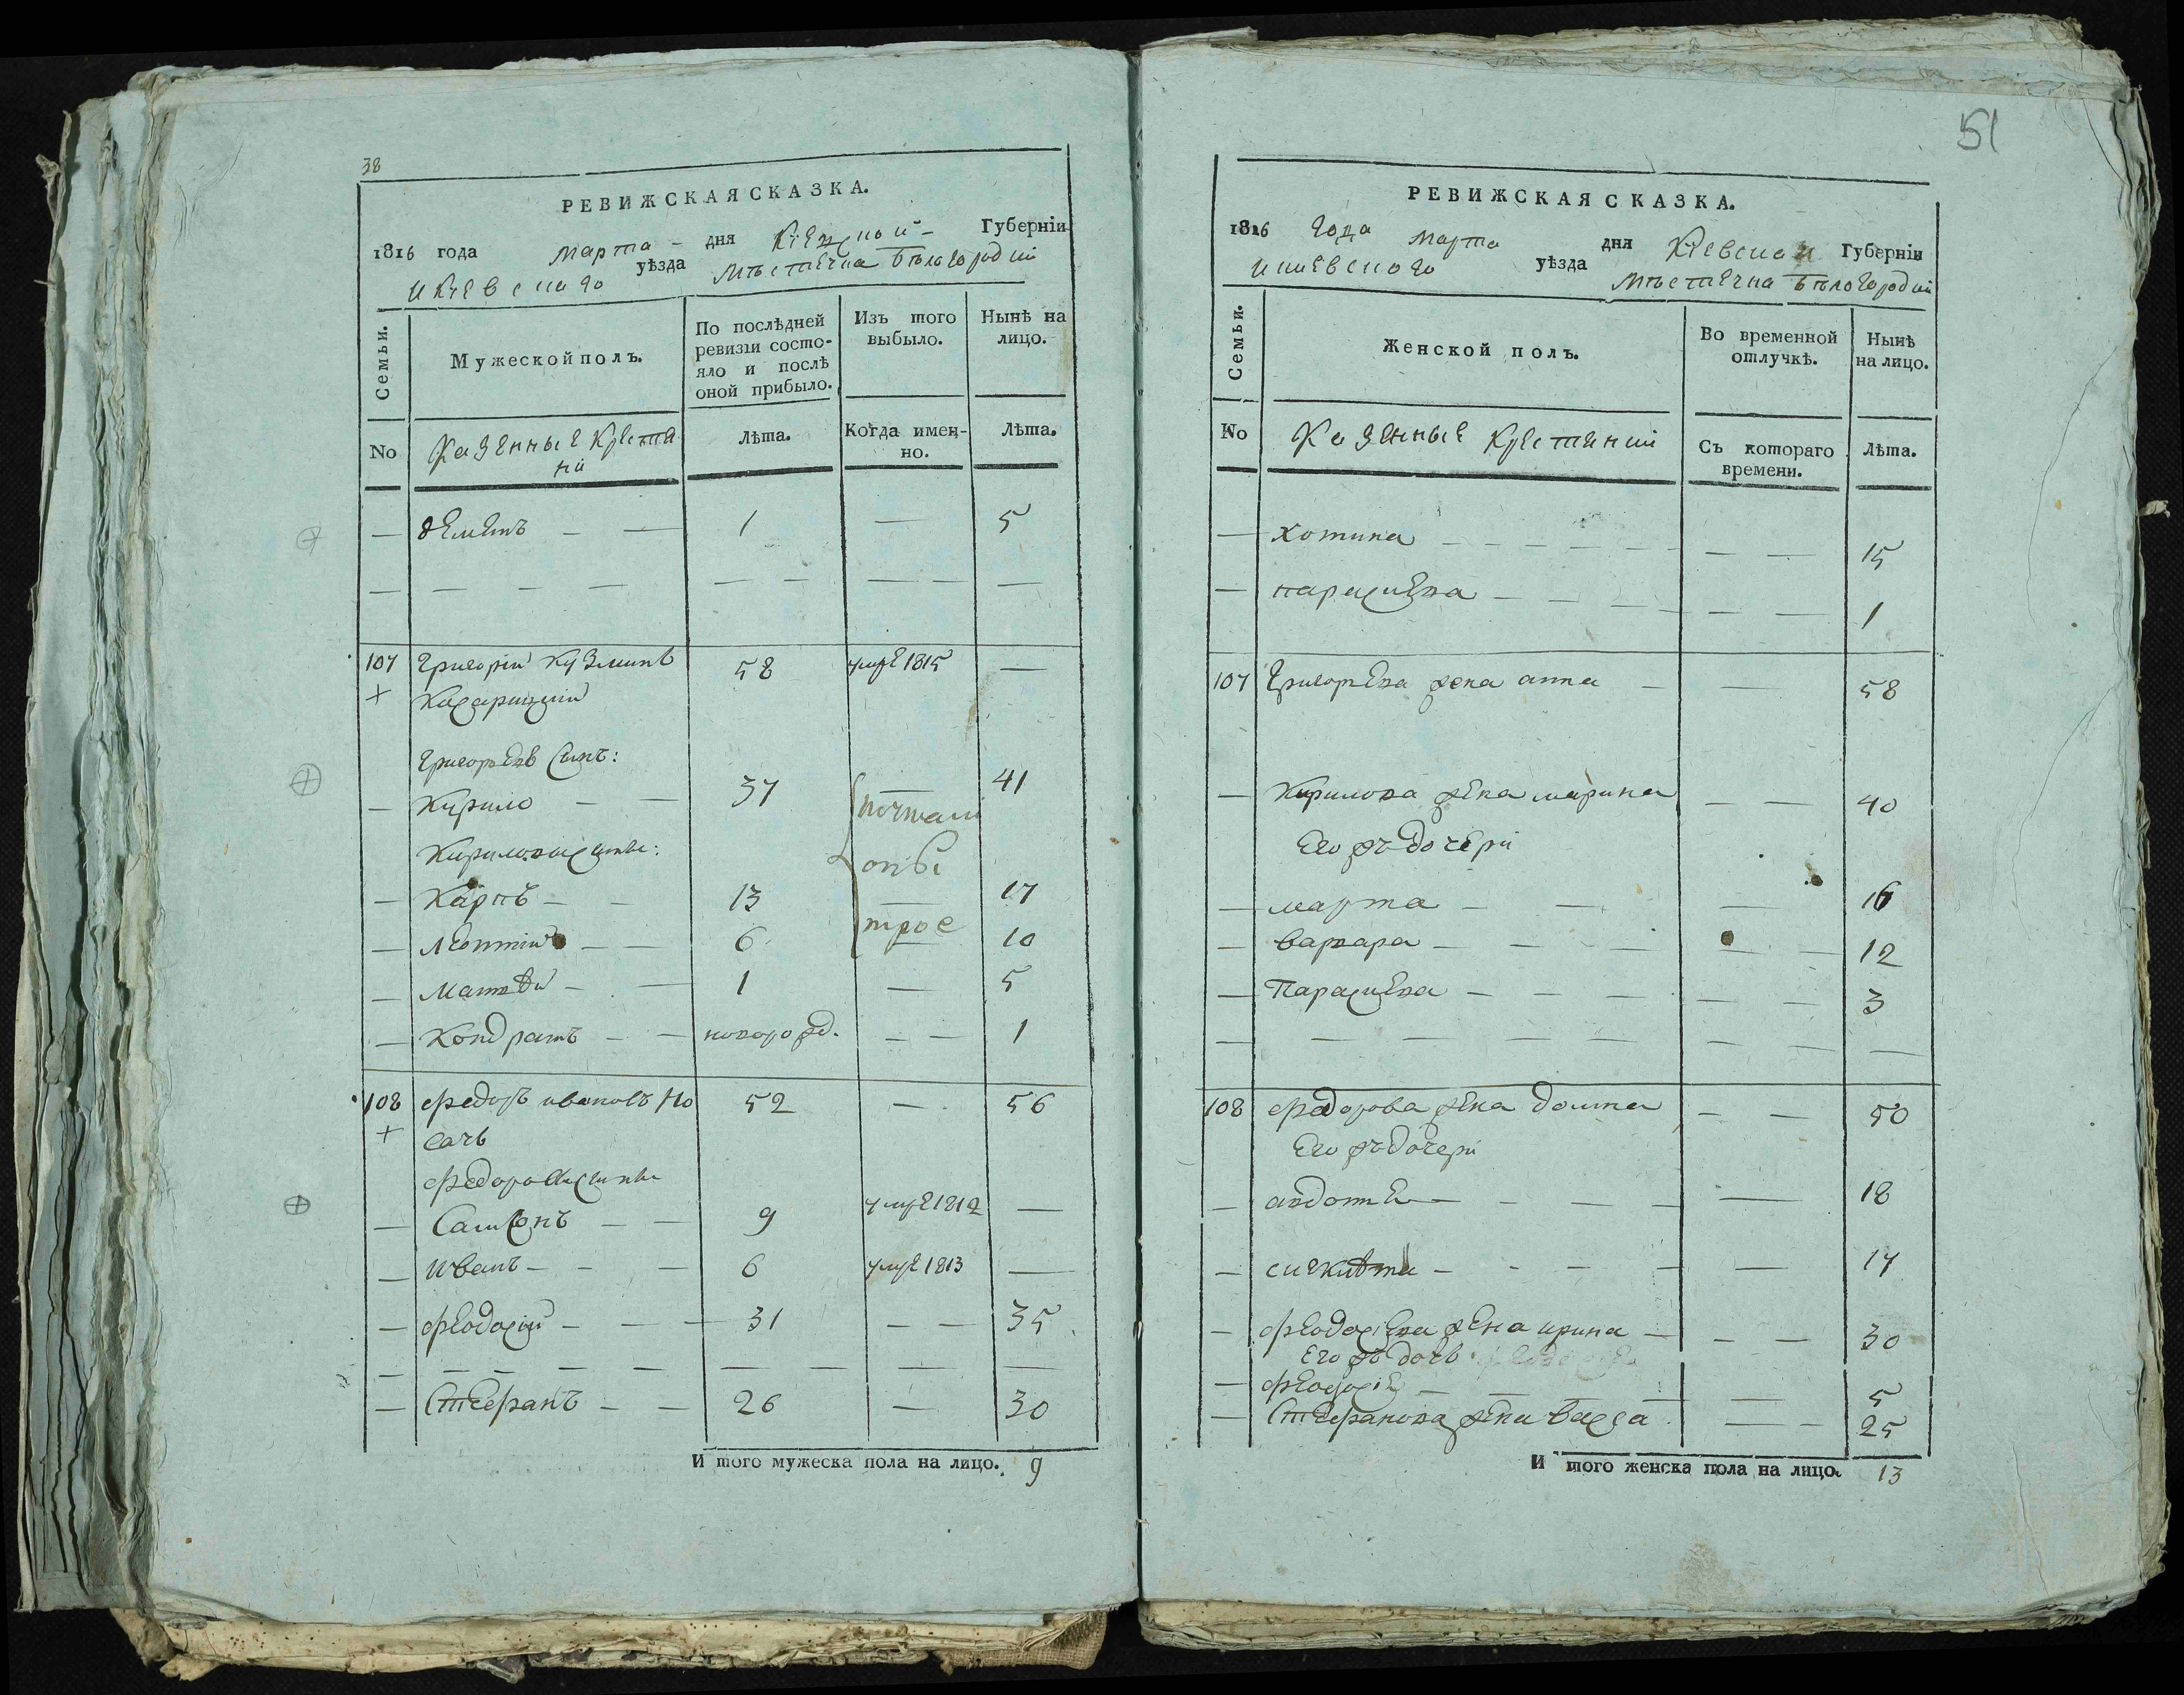 38
РЕВИЖСКАЯ СКАЗКА.
1816 года марта - дня Кіевской Губерніи
и Кіевскаго уѣзда мѣстечка бѣлогородки
Семьи.
Мужеской полъ.
По послѣдней ревизіи состо-
яло и послѣ
оной прибыло.
Изъ того
выбыло.
Нынѣ на
лицо.
No
Казенные Крестя
ни
Лѣта.
Когда имен-
но.
Лѣта.
— деметъ — — 1 — 5
107 григорій Кузминъ 58 умре 1815 —
+ Касарицкій
григорьевъ сынъ:
— Кирило — — 37 — 41
почтали
Кириловы сыны:
онъі
— Карпъ — — 13 — 17
трое
— леонтій — — 6 — 10
— матвѣй — — 1 — 5
— Кондратъ — — новорожд. — — 1
108 федоръ ивановъ Но 52 — 56
+ сачъ
федоровы сыны
— Самсонъ — — 9 умре 1812 —
— иванъ — — 6 умре 1813 —
— феодосій — — 31 — — 35
— Стефанъ — — 26 — 30
И того мужеска пола на лицо. 9
51
РЕВИЖСКАЯ СКАЗКА.
1816 года марта дня Кіевской Губерніи
и кіевскаго уѣзда мѣстечка бѣлогородки
Семьи.
Женской полъ.
Во временной
отлучкѣ.
Нынѣ
на лицо.
No
Казенные крестянки
Съ котораго
времени.
Лѣта.
— хотина — — 15
— параскева — — 1
107 григорьева жена анна — — 58
— Кирилова жена марина — — 40
Его жъ дочери
— марта — — 16
— варвара — — 12
— Параскева — — 3
108 федорова жена домна — — 50
Его жъ дочери
— авдотя — — 18
— — — 17
— феодосіева жена ирина — — 30
Его жъ дочь
— феодосія — — 5
— Стефанова жена васса — — 25
И того женска пола на лицо. 13